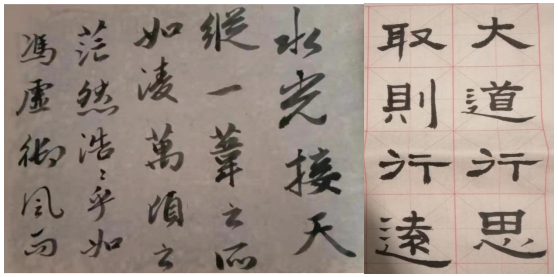 水光接天
縱一葦之所
如凌萬頃之
茫然浩〻乎如
馮虛御風而
大道行思
取則行遠